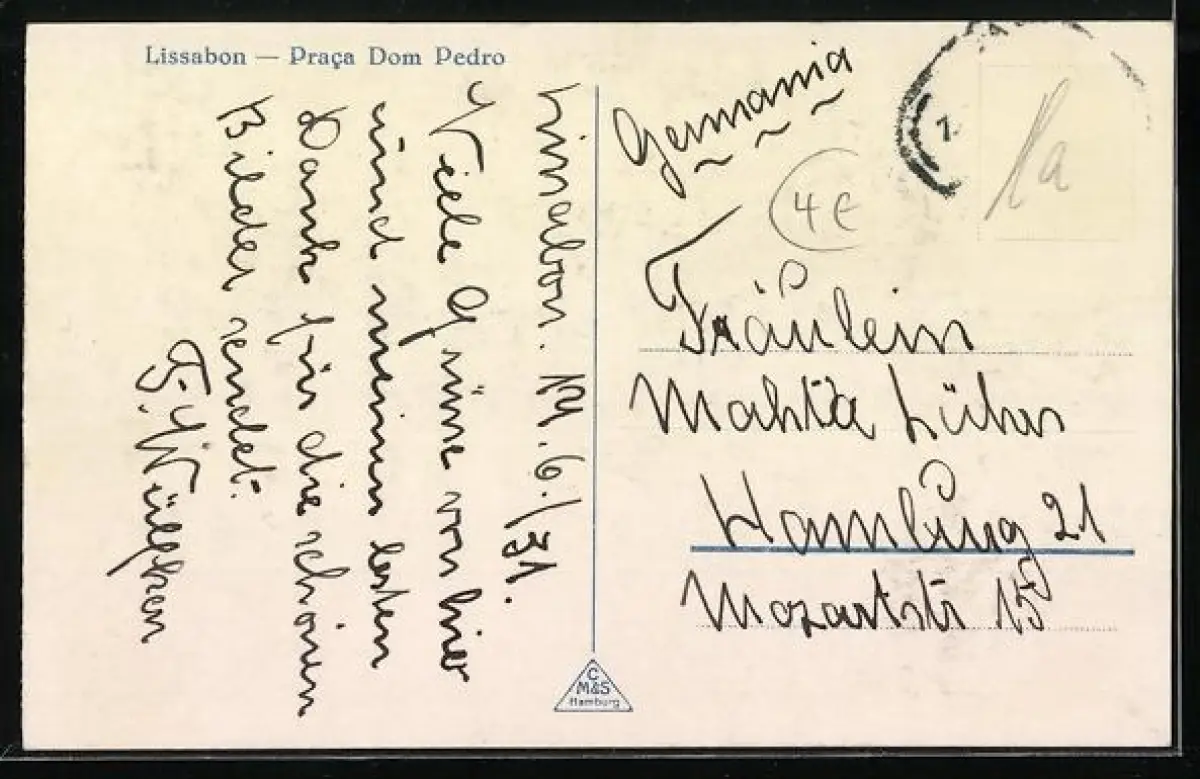 Lissabon — Praça Dom Pedro
Lissabon. 19.6./31.
Viele Grüsse von hier
und meinen besten
Dank für die schönen
Bilder sendet.
Germania
1a
4 E
Fräulein
Lührs
Hamburg 21
Mozartstr 15
C
M&S
Hamburg